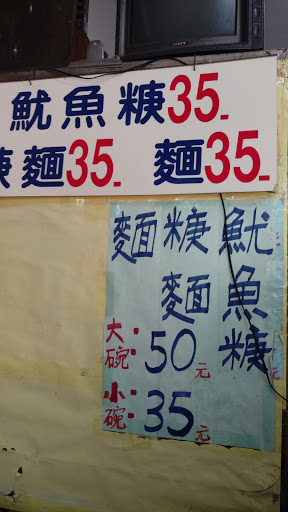 SONY
魷魚𥻧35.
𥻧麵35. 麵35.
魷魚𥻧
𥻧麵
麵
大碗:50元
小碗:35元